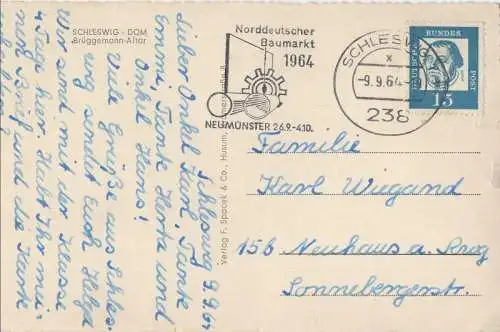 SCHLESWIG - DOM
Brüggemann-Altar
Schleswig 9.9.64
Lieber Onkel Karl, Tante
Emmi, Tante Herta und
Onkel Hans!
Viele Grüße aus Schles-
wig sendet Euch Helga
Wir sind mit der Klasse
4 Tage hier. Habt Ihr mei-
nen Brief und die Karte
Verlag F. Spacek & Co., Husum,
Norddeutscher
Baumarkt
1964
NEUMÜNSTER 26.9.-4.10.
SCHLESWIG
-9.9.64
238
DEUTSCHE
BUNDES
POST
15
Familie
Karl Wiegand
15b Neuhaus a. Rwg
Sonnebergerstr.